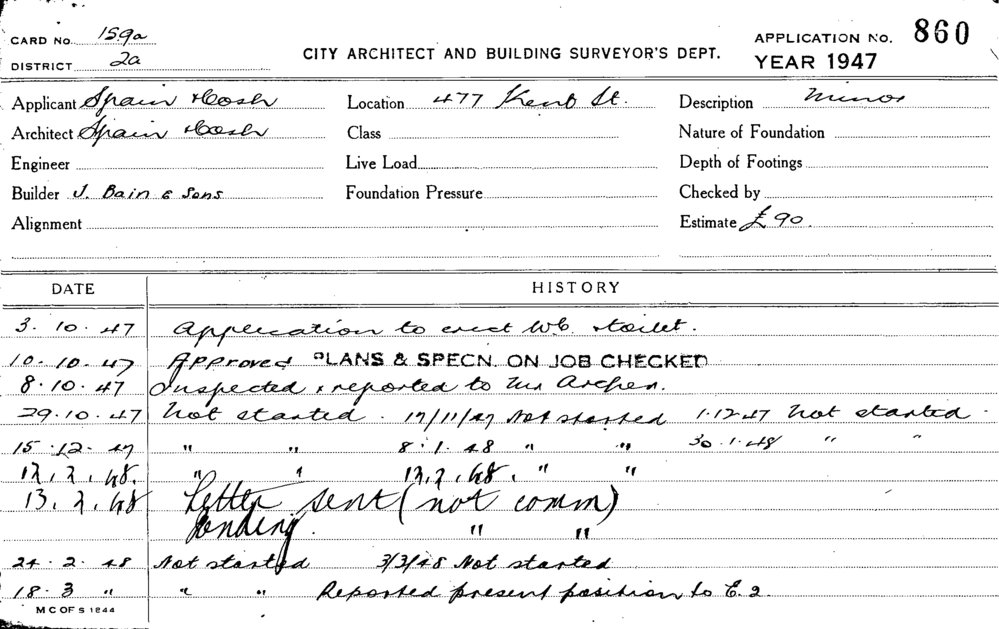 CARD No. 159a
DISTRICT 2a
CITY ARCHITECT AND BUILDING SURVEYOR'S DEPT.
APPLICATION No. 860
YEAR 1947
Applicant Spain & Cosh Location 477 Kent St. Description Minor
Architect Spain & Cosh Class Nature of Foundation
Engineer Live Load Depth of Footings
Builder J. Bain & Sons Foundation Pressure Checked by
Alignment Estimate £90.
DATE HISTORY
3.10.47 Application to erect WC & toilet.
10.10.47 Approved PLANS & SPECN. ON JOB CHECKED
8.10.47 Inspected & reported to Mr Archer.
29.10.47 Not started. 17/11/47 Not started 1.12.47 Not started.
15.12.47 " " 8.1.48 " " 30.1.48 " "
12.2.48. " " 12.2.48. " "
13.2.48 Letter sent (not comm)
Pending. " "
24.2.48 Not started 3/3/48 Not started
18.3 " " " Reported present position to E.2.
M C OF S 1844